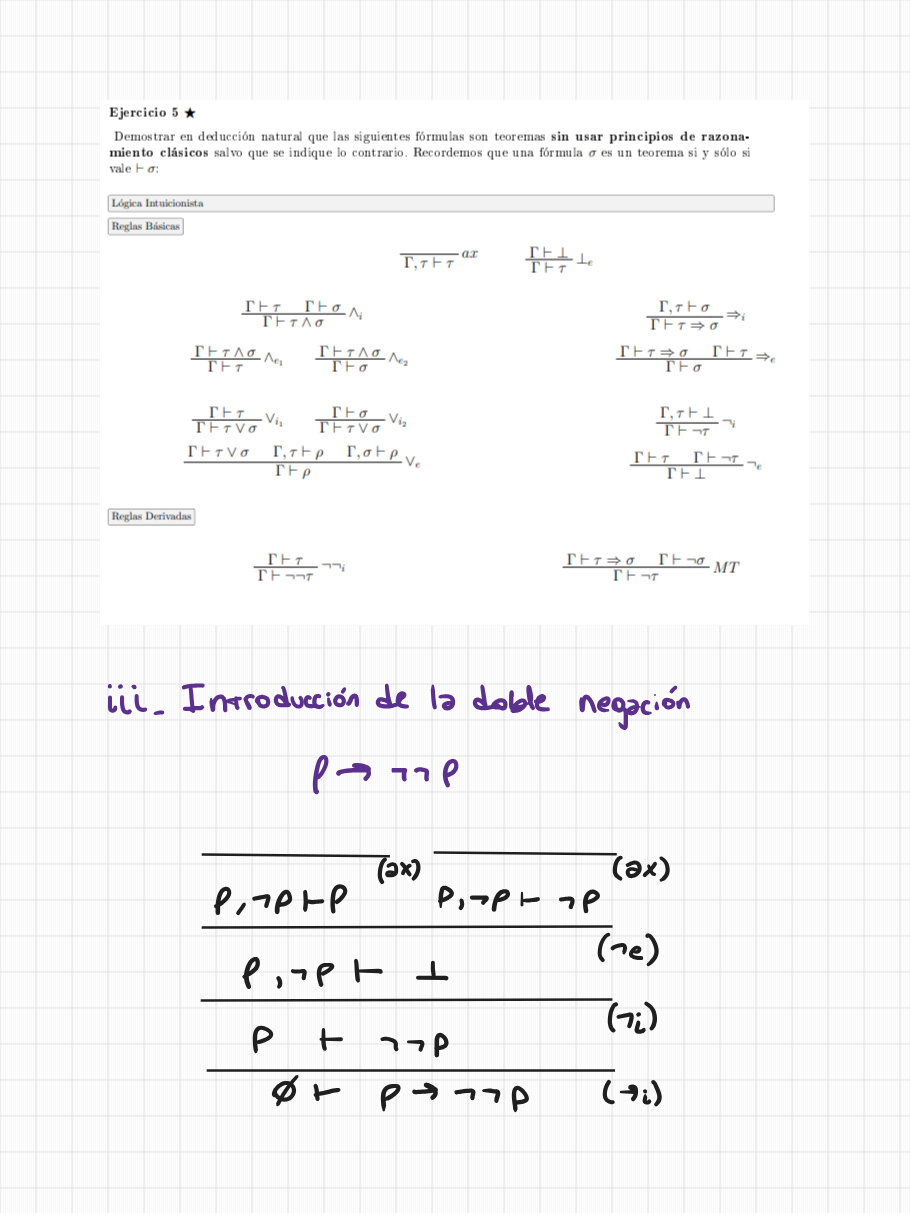 Ejercicio 5 ★
Demostrar en deducción natural que las siguientes fórmulas son teoremas sin usar principios de razona-
miento clásicos salvo que se indique lo contrario. Recordemos que una fórmula σ es un teorema si y sólo si
vale ⊢ σ:
Lógica Intuicionista
Reglas Básicas
Γ, τ ⊢ τ ax
Γ ⊢ ⊥
Γ ⊢ τ ⊥e
Γ ⊢ τ Γ ⊢ σ
Γ ⊢ τ ∧ σ ∧i
Γ, τ ⊢ σ
Γ ⊢ τ ⇒ σ ⇒i
Γ ⊢ τ ∧ σ
Γ ⊢ τ ∧e1
Γ ⊢ τ ∧ σ
Γ ⊢ σ ∧e2
Γ ⊢ τ ⇒ σ Γ ⊢ τ
Γ ⊢ σ ⇒e
Γ ⊢ τ
Γ ⊢ τ ∨ σ ∨i1
Γ ⊢ σ
Γ ⊢ τ ∨ σ ∨i2
Γ, τ ⊢ ⊥
Γ ⊢ ¬τ ¬i
Γ ⊢ τ ∨ σ Γ, τ ⊢ ρ Γ, σ ⊢ ρ
Γ ⊢ ρ ∨e
Γ ⊢ τ Γ ⊢ ¬τ
Γ ⊢ ⊥ ¬e
Reglas Derivadas
Γ ⊢ τ
Γ ⊢ ¬¬τ ¬¬i
Γ ⊢ τ ⇒ σ Γ ⊢ ¬σ
Γ ⊢ ¬τ MT
iii_ Introducción de la doble negación
ρ → ¬¬ρ
(ax) (ax)
ρ, ¬ρ ⊢ ρ ρ, ¬ρ ⊢ ¬ρ
(¬e)
ρ, ¬ρ ⊢ ⊥
(¬i)
ρ ⊢ ¬¬ρ
∅ ⊢ ρ → ¬¬ρ (→i)